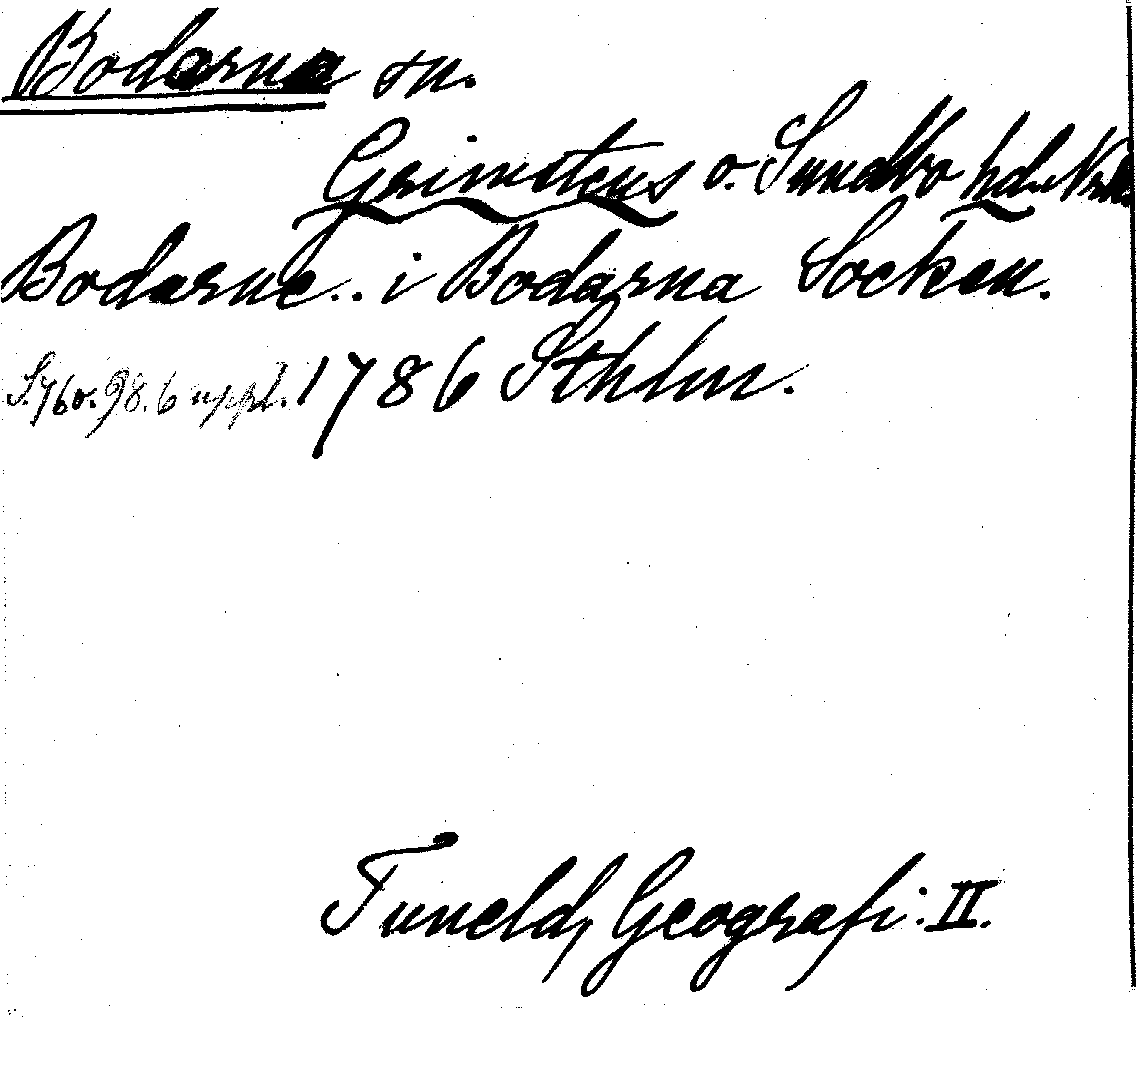 Bodarna sn.
Grimstens o. Sundbo hd.
Bodarne.. i Bodarna Socken.
S. 76 o. 98. 6 uppl. 1786 Sthlm.
Tuneld, Geografi: II.